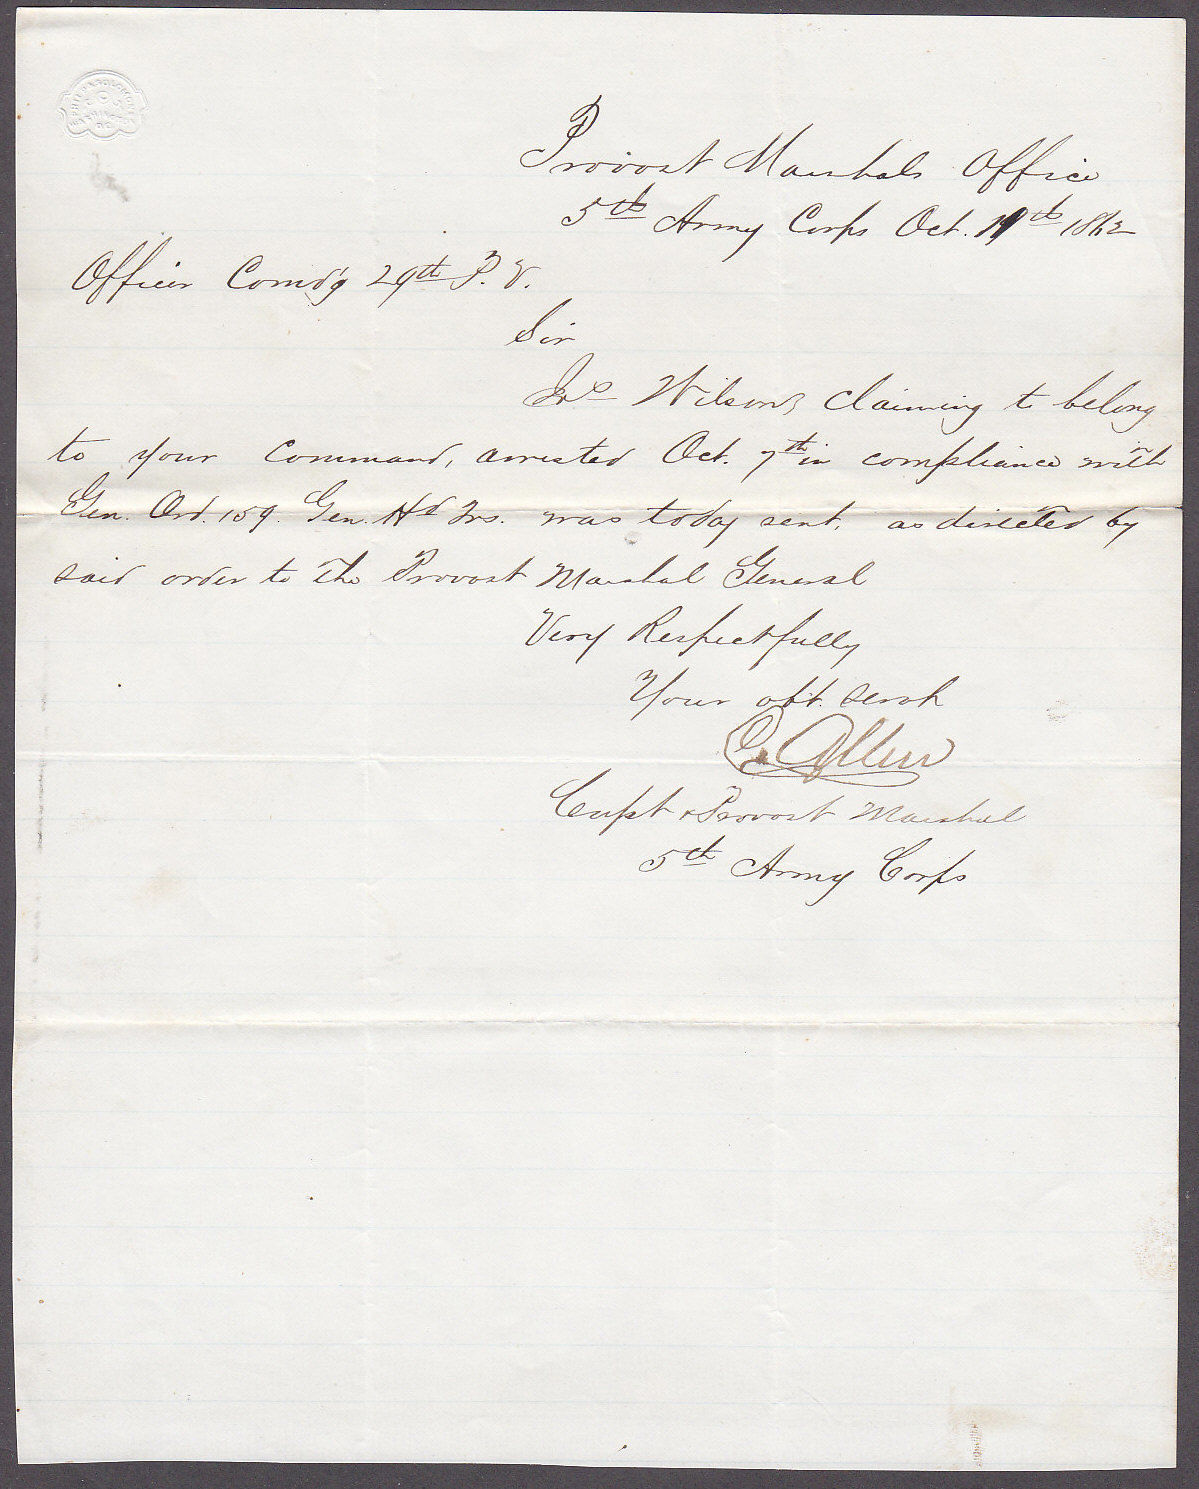 Provost Marshals Office
5th Army Corps Oct. 11th 1862
Officer Comd'g 29th P. V.
Sir
Jno Wilson, claiming to belong
to your command, arrested Oct. 7th in compliance with
Gen. Ord. 159. Gen. Hd Qrs. was today sent, as directed by
said order to the Provost Marshal General
Very Respectfully
Your obt. servt
Allen
Capt & Provost Marshal
5th Army Corps